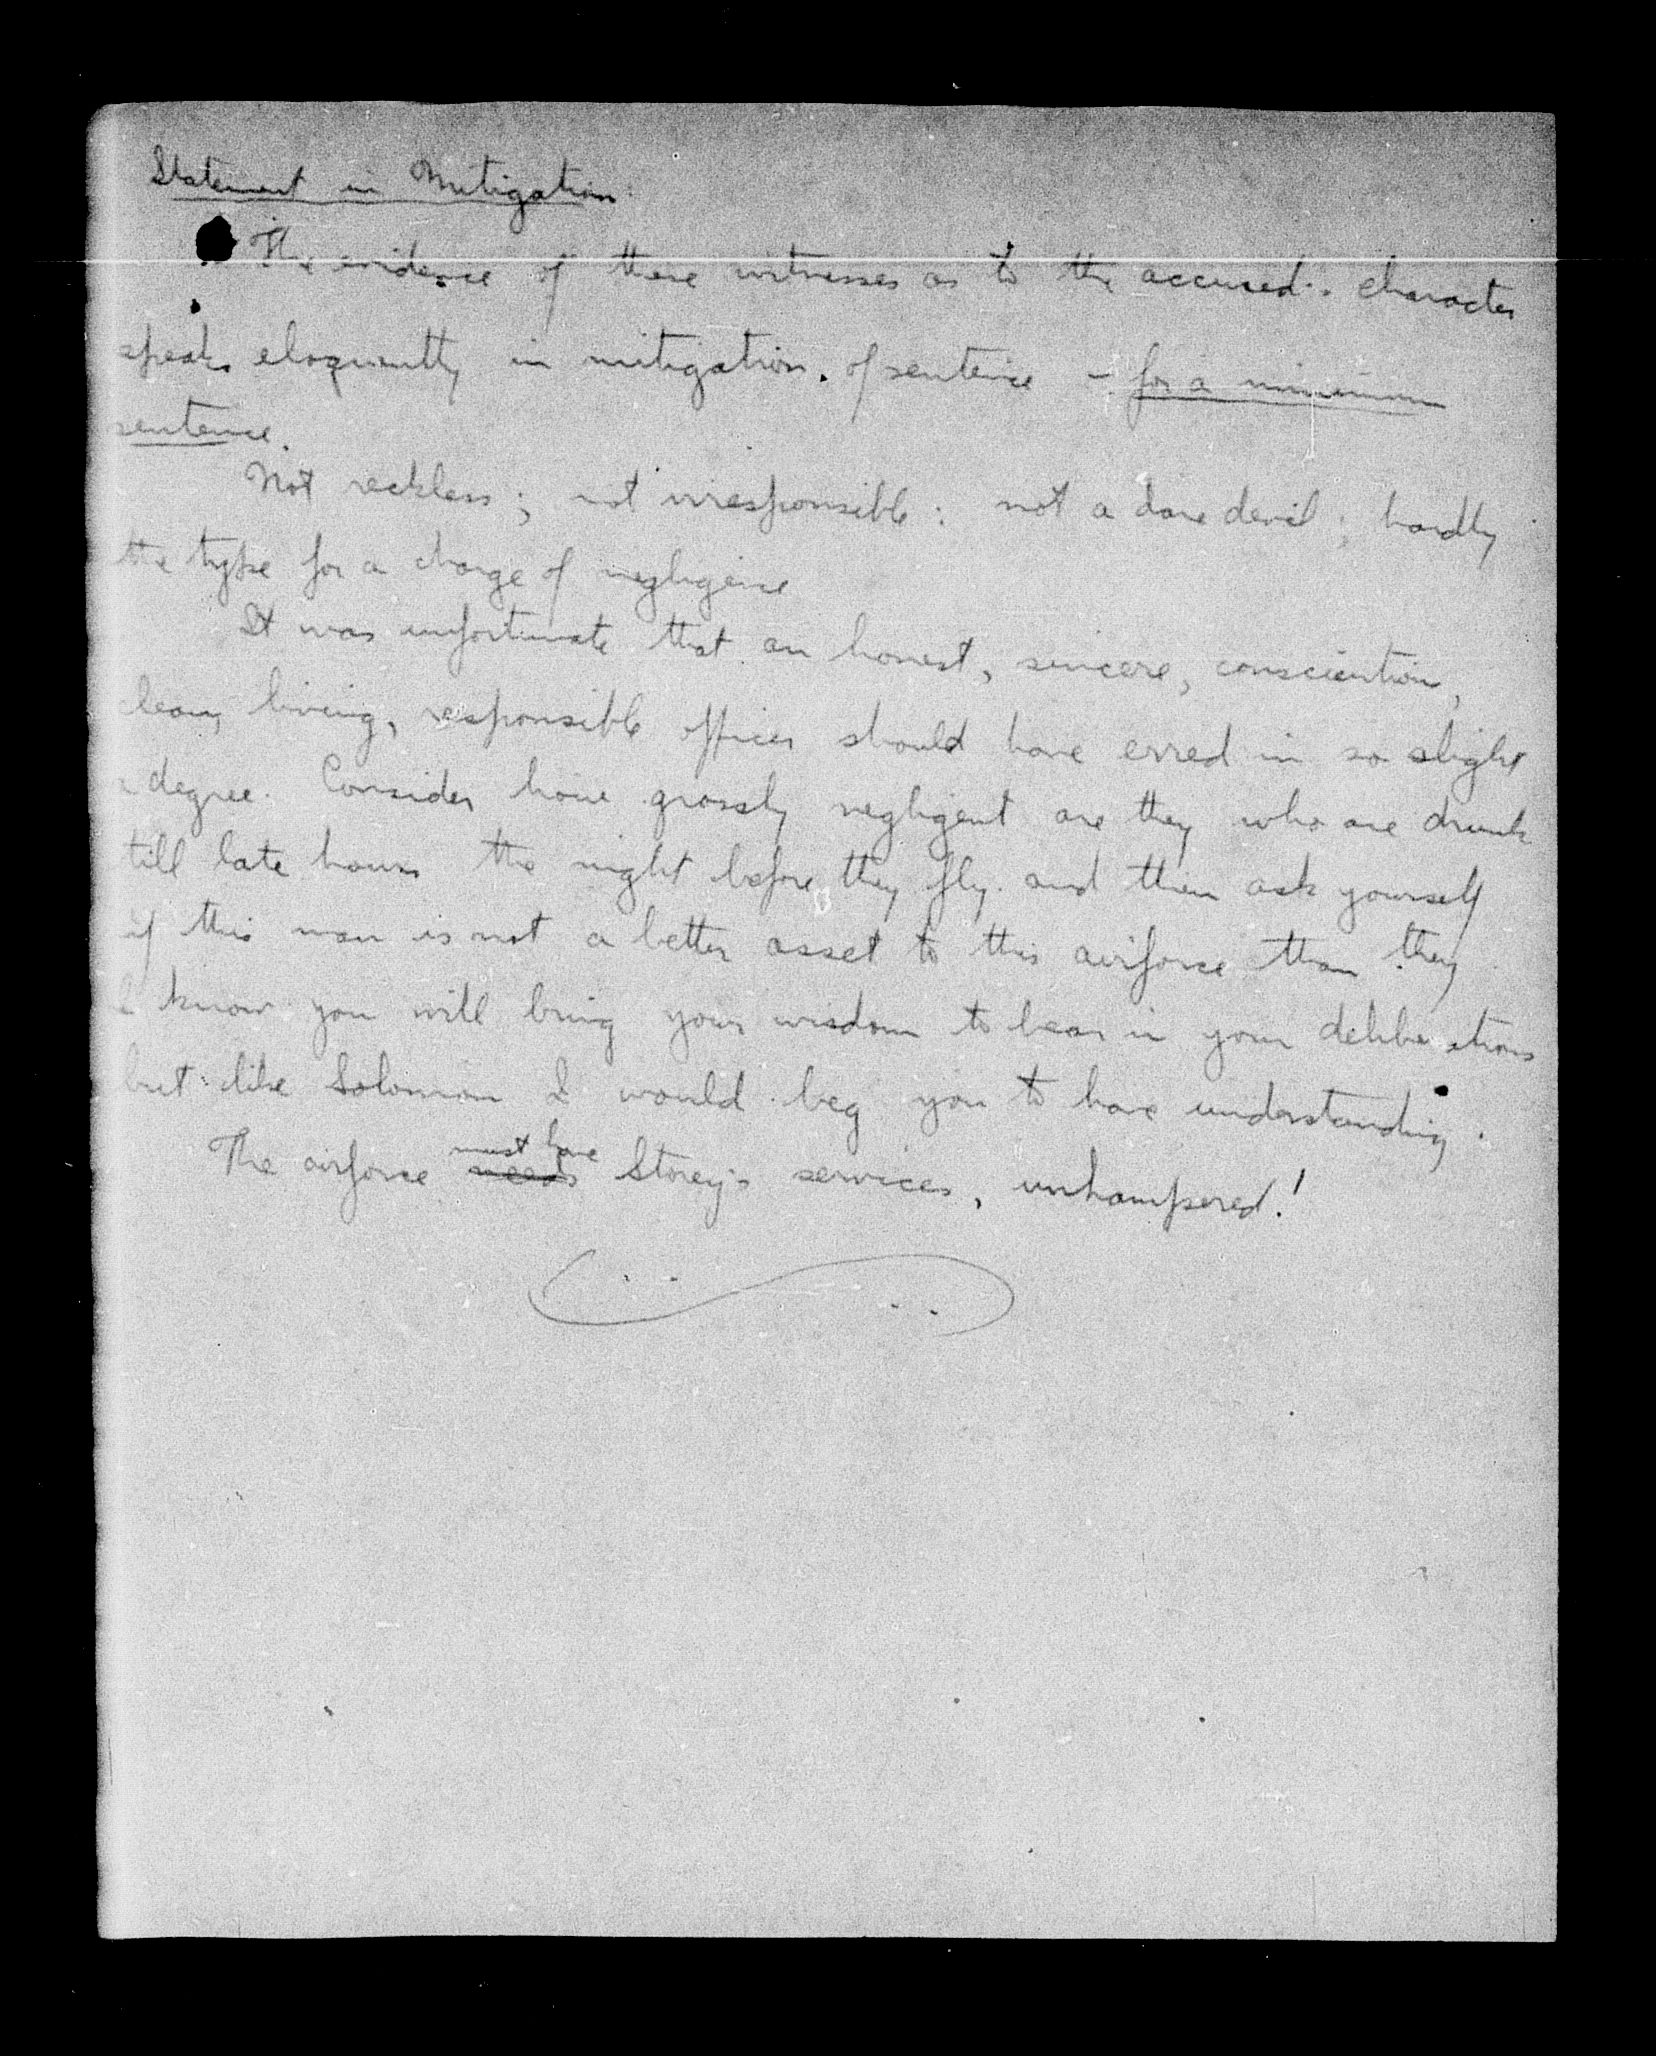 Statement in Mitigation.
The evidence of these witnesses as to the accused's character
speaks eloquently in mitigation of sentence – for a minimum
sentence.
Not reckless; not irresponsible; not a dare devil; hardly
the type for a charge of negligence
It was unfortunate that an honest, sincere, conscientious,
clean living, responsible officer should have erred in so slight
a degree. Consider how grossly negligent are they who are drunk
till late hours the night before they fly. and then ask yourself
if this man is not a better asset to this airforce than they.
I know you will bring your wisdom to bear in your deliberations
but like Solomon I would beg you to have understanding.
must have
The airforce needs Storey's services, unhampered!